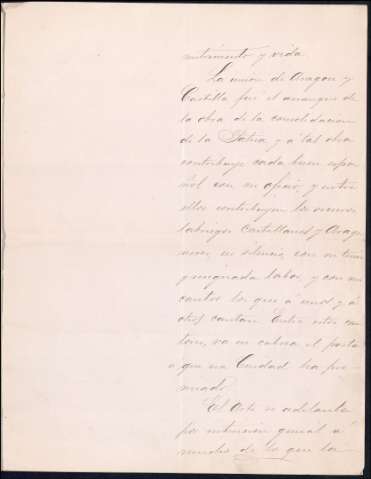 nutrimento y vida.
La unión de Aragon y
Castilla fué el arranque de
la obra de la consolidacion
de la Patria, y á tal obra
contribuye cada buen espa
ñol con su afán, y entre
ellos contribuyen los
labriegos Castellanos y Arago
neses, en silencio, con su
y resignada labor, y con sus
cantos los que á unos y á
otros cantan. Entre estos can
tores, va en cabeza el poeta
a que una Ciudad ha pre-
miado.
El Arte se adelanta
por intuición genial á
mucho de lo que la